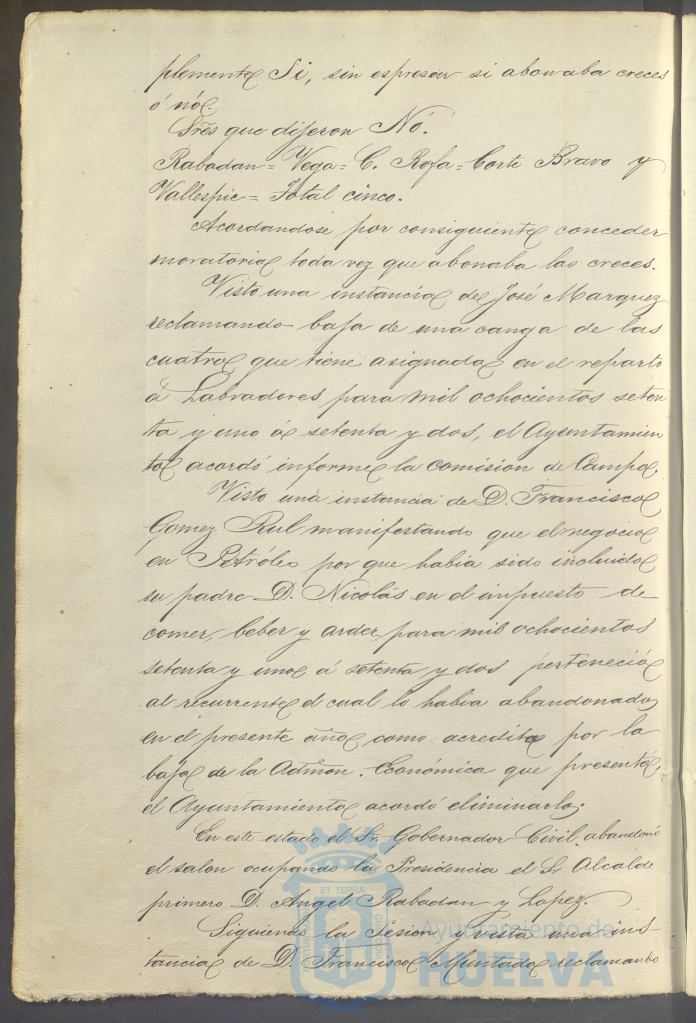 plemente Si, sin espresar si abonaba creces
ó nó.
Sres que dijeron Nó.
Rabadan = Vega = C. Rofa = Corte Bravo y
Vallespin = Total cinco.
Acordandose por consiguiente conceder
moratoria toda vez que abonaba las creces.
Visto una instancia de José Marquez
reclamando baja de una canga de las
cuatro que tiene asignada en el reparto
á Labradores para mil ochocientos seten
ta y uno á setenta y dos, el Ayuntamien
to acordó informe la comision de Campo.
Visto una instancia de D. Francisco
Gomez Rul manifestando que el negocio
en Petróleo por que habia sido incluido
su padre D. Nicolás en el impuesto de
comer, beber y arder para mil ochocientos
setenta y uno á setenta y dos perteneció
al recurrente el cual lo habia abandonado
en el presente año como acredita por la
baja de la Admon. Económica que presentó,
el Ayuntamiento acordó eliminarlo.
En este estado el Sr. Gobernador Civil abandonó
el salon ocupando la Presidencia el Sr Alcalde
primero D. Angel Rabadan y Lopez.
Siguiendo la Sesion y vista una ins
tancia de D. Francisco Muntado reclamando
ET TERRA
Ayuntamiento de
HUELVA